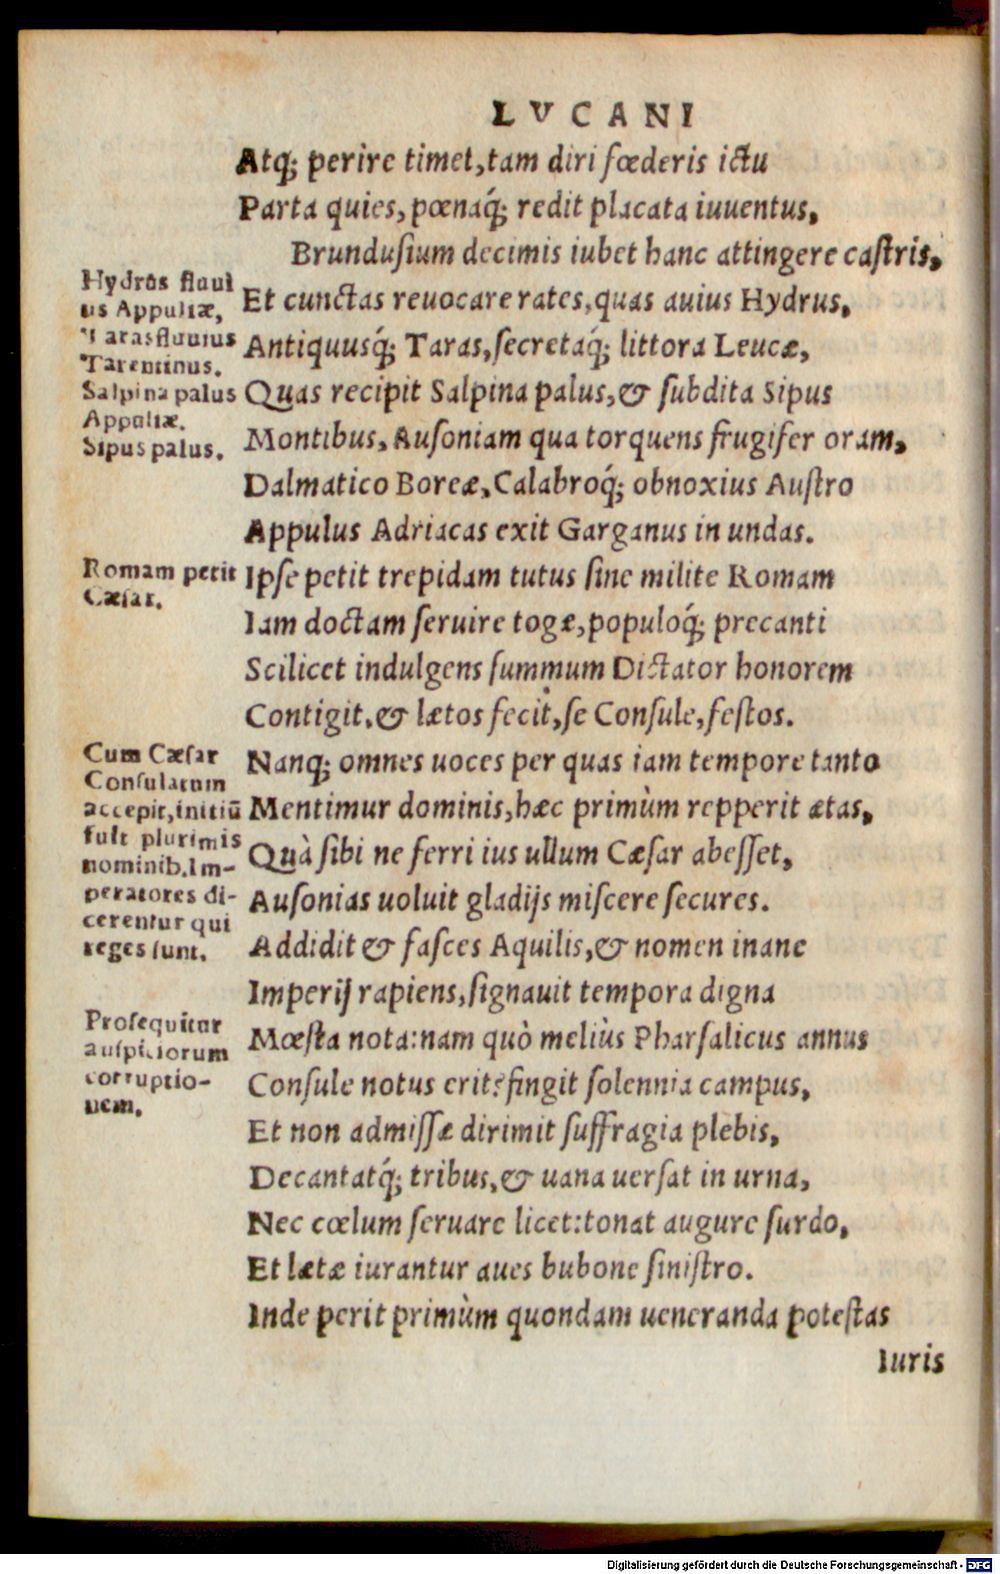 LVCANI
Atq́; perire timet, tam diri fœderis ictu
Parta quies, pœnaq́; redit placata iuuentus,
Brundusium decimis iubet hanc attingere castris,
Et cunctas reuocare rates, quas auius Hydrus,
Antiquusq́; Taras, secretaq́; littora Leucæ,
Quas recipit Salpina palus, & subdita Sipus
Montibus, Ausoniam qua torquens frugifer oram,
Dalmatico Boreæ, Calabroq́; obnoxius Austro
Appulus Adriacas exit Garganus in undas.
Ipse petit trepidam tutus sine milite Romam
Iam doctam seruire togæ, populoq́; precanti
Scilicet indulgens summum Dictator honorem
Contigit, & lætos fecit, se Consule, festos.
Nanq; omnes uoces per quas iam tempore tanto
Mentimur dominis, hæc primùm repperit ætas,
Quà sibi ne ferri ius ullum Cæsar abesset,
Ausonias uoluit gladijs miscere secures.
Addidit & fasces Aquilis, & nomen inane
Imperij rapiens, signauit tempora digna
Mœsta nota: nam quò meliùs Pharsalicus annus
Consule notus erit? fingit solennia campus,
Et non admissæ dirimit suffragia plebis,
Decantatq́; tribus, & uana uersat in urna,
Nec cœlum seruare licet: tonat augure surdo,
Et lætæ iurantur aues bubone sinistro.
Inde perit primùm quondam ueneranda potestas
Iuris
Hydrus fluui
us Appuliæ,
Taras fluuius
Tarentinus.
Salpina palus
Appuliæ.
Sipus palus.
Romam petit
Cæsar.
Cum Cæsar
Consulatum
accepit, initiũ
fuit plurimis
nominib. Im-
peratores di-
cerentur qui
reges sunt.
Prosequitur
auspiciorum
corruptio-
nem.
Digitalisierung gefördert durch die Deutsche Forschungsgemeinschaft - DFG